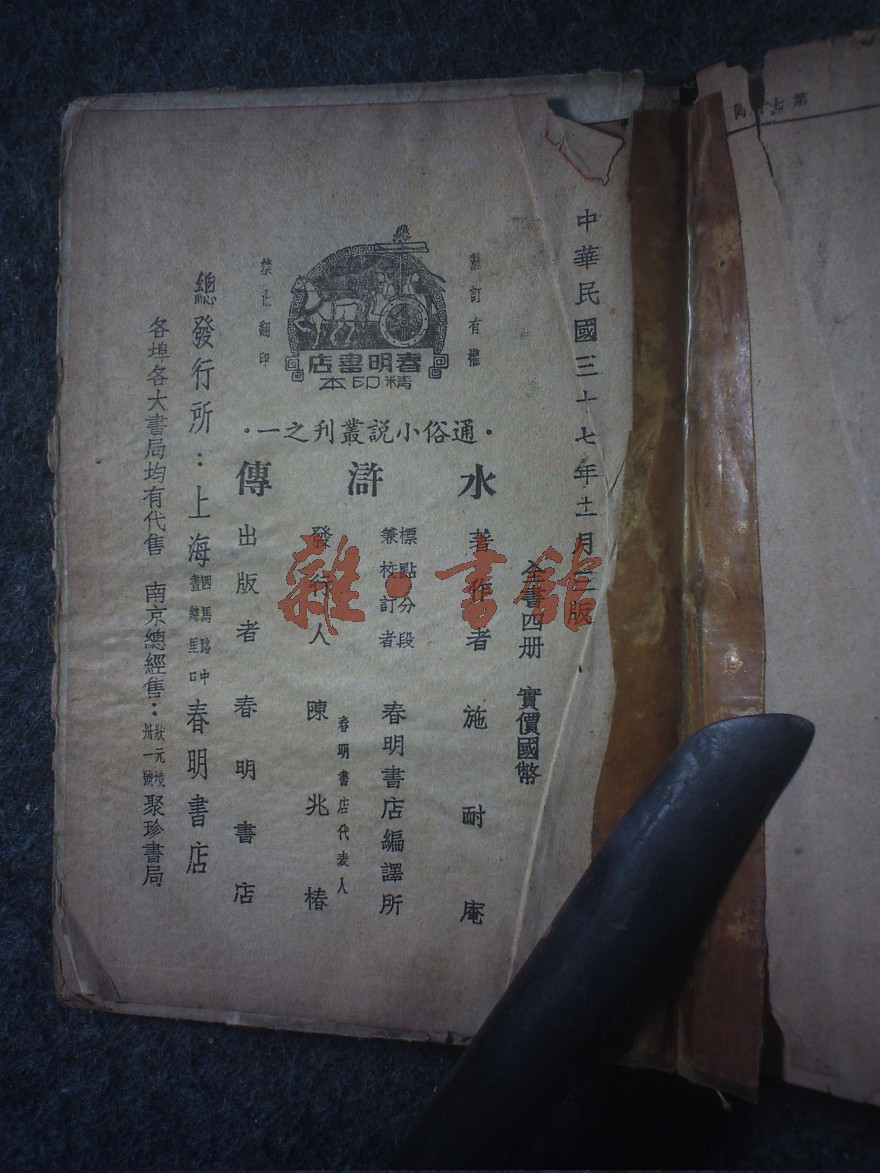 中華民國三十七年十一月三版
全書四册　實價國幣
翻訂有權
禁止翻印
春明書店
精印本
·通俗小說叢刊之一·
水滸傳
著作者　施耐庵
標點分段
兼校訂者　春明書店編譯所
發行人　春明書店代表人　陳兆椿
出版者　春明書店
總發行所：上海四馬路中畫錦里口春明書店
各埠各大書局均有代售　南京總經售：狀元境卅一號聚珍書局
雜·書館